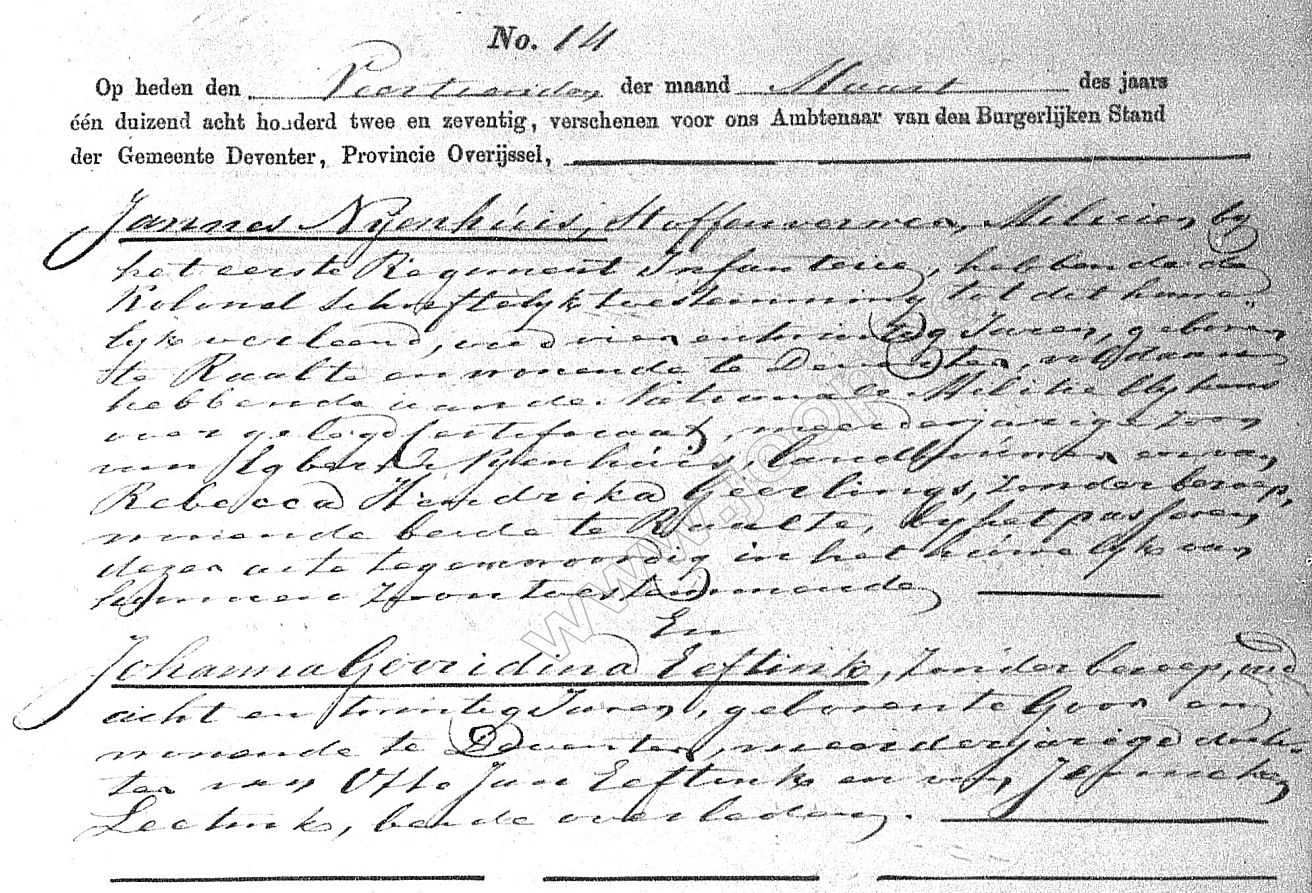 No. 14
Op heden den Veertienden der maand Maart des jaars
één duizend acht honderd twee en zeventig, verschenen voor ons Ambtenaar van den Burgerlijken Stand
der Gemeente Deventer, Provincie Overijssel,
Jannes Nijenhuis, Stoffenverwer, Milicien by
het eerste Regiment Infanterie, hebbende de
Kolonel schriftelyk toestemming tot dit huwe-
lyk verleend, oud vier en twintig Jaren, geboren
te Raalte en wonende te Deventer, voldaan
hebbende aan de Nationale Militie blykens
overgelegd certificaat, meerderjarige zoon
van Egbert Nyenhuis, landbouwer en van
Rebecca Hendrika Geerlings, zonder beroep,
wonende beide te Raalte, by het passeren
dezer acte tegenwoordig in het huwelyk van
hunnen Zoon toestemmende
En
Johanna Gerridina Eeftink, zonder beroep, oud
acht en twintig Jaren, geboren te Goor en
wonende te Deventer, meerderjarige doch-
ter van Otto Jan Eeftink en van Jenneken
Leetink, beide overleden.
www.joor